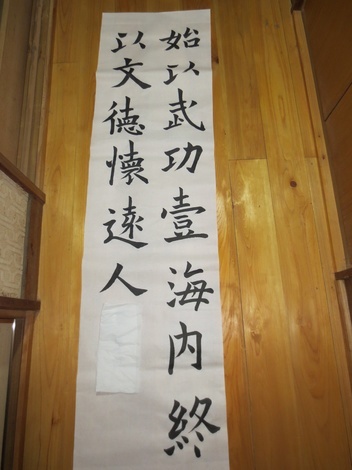 始以武功壹海内終
以文德懷遠人